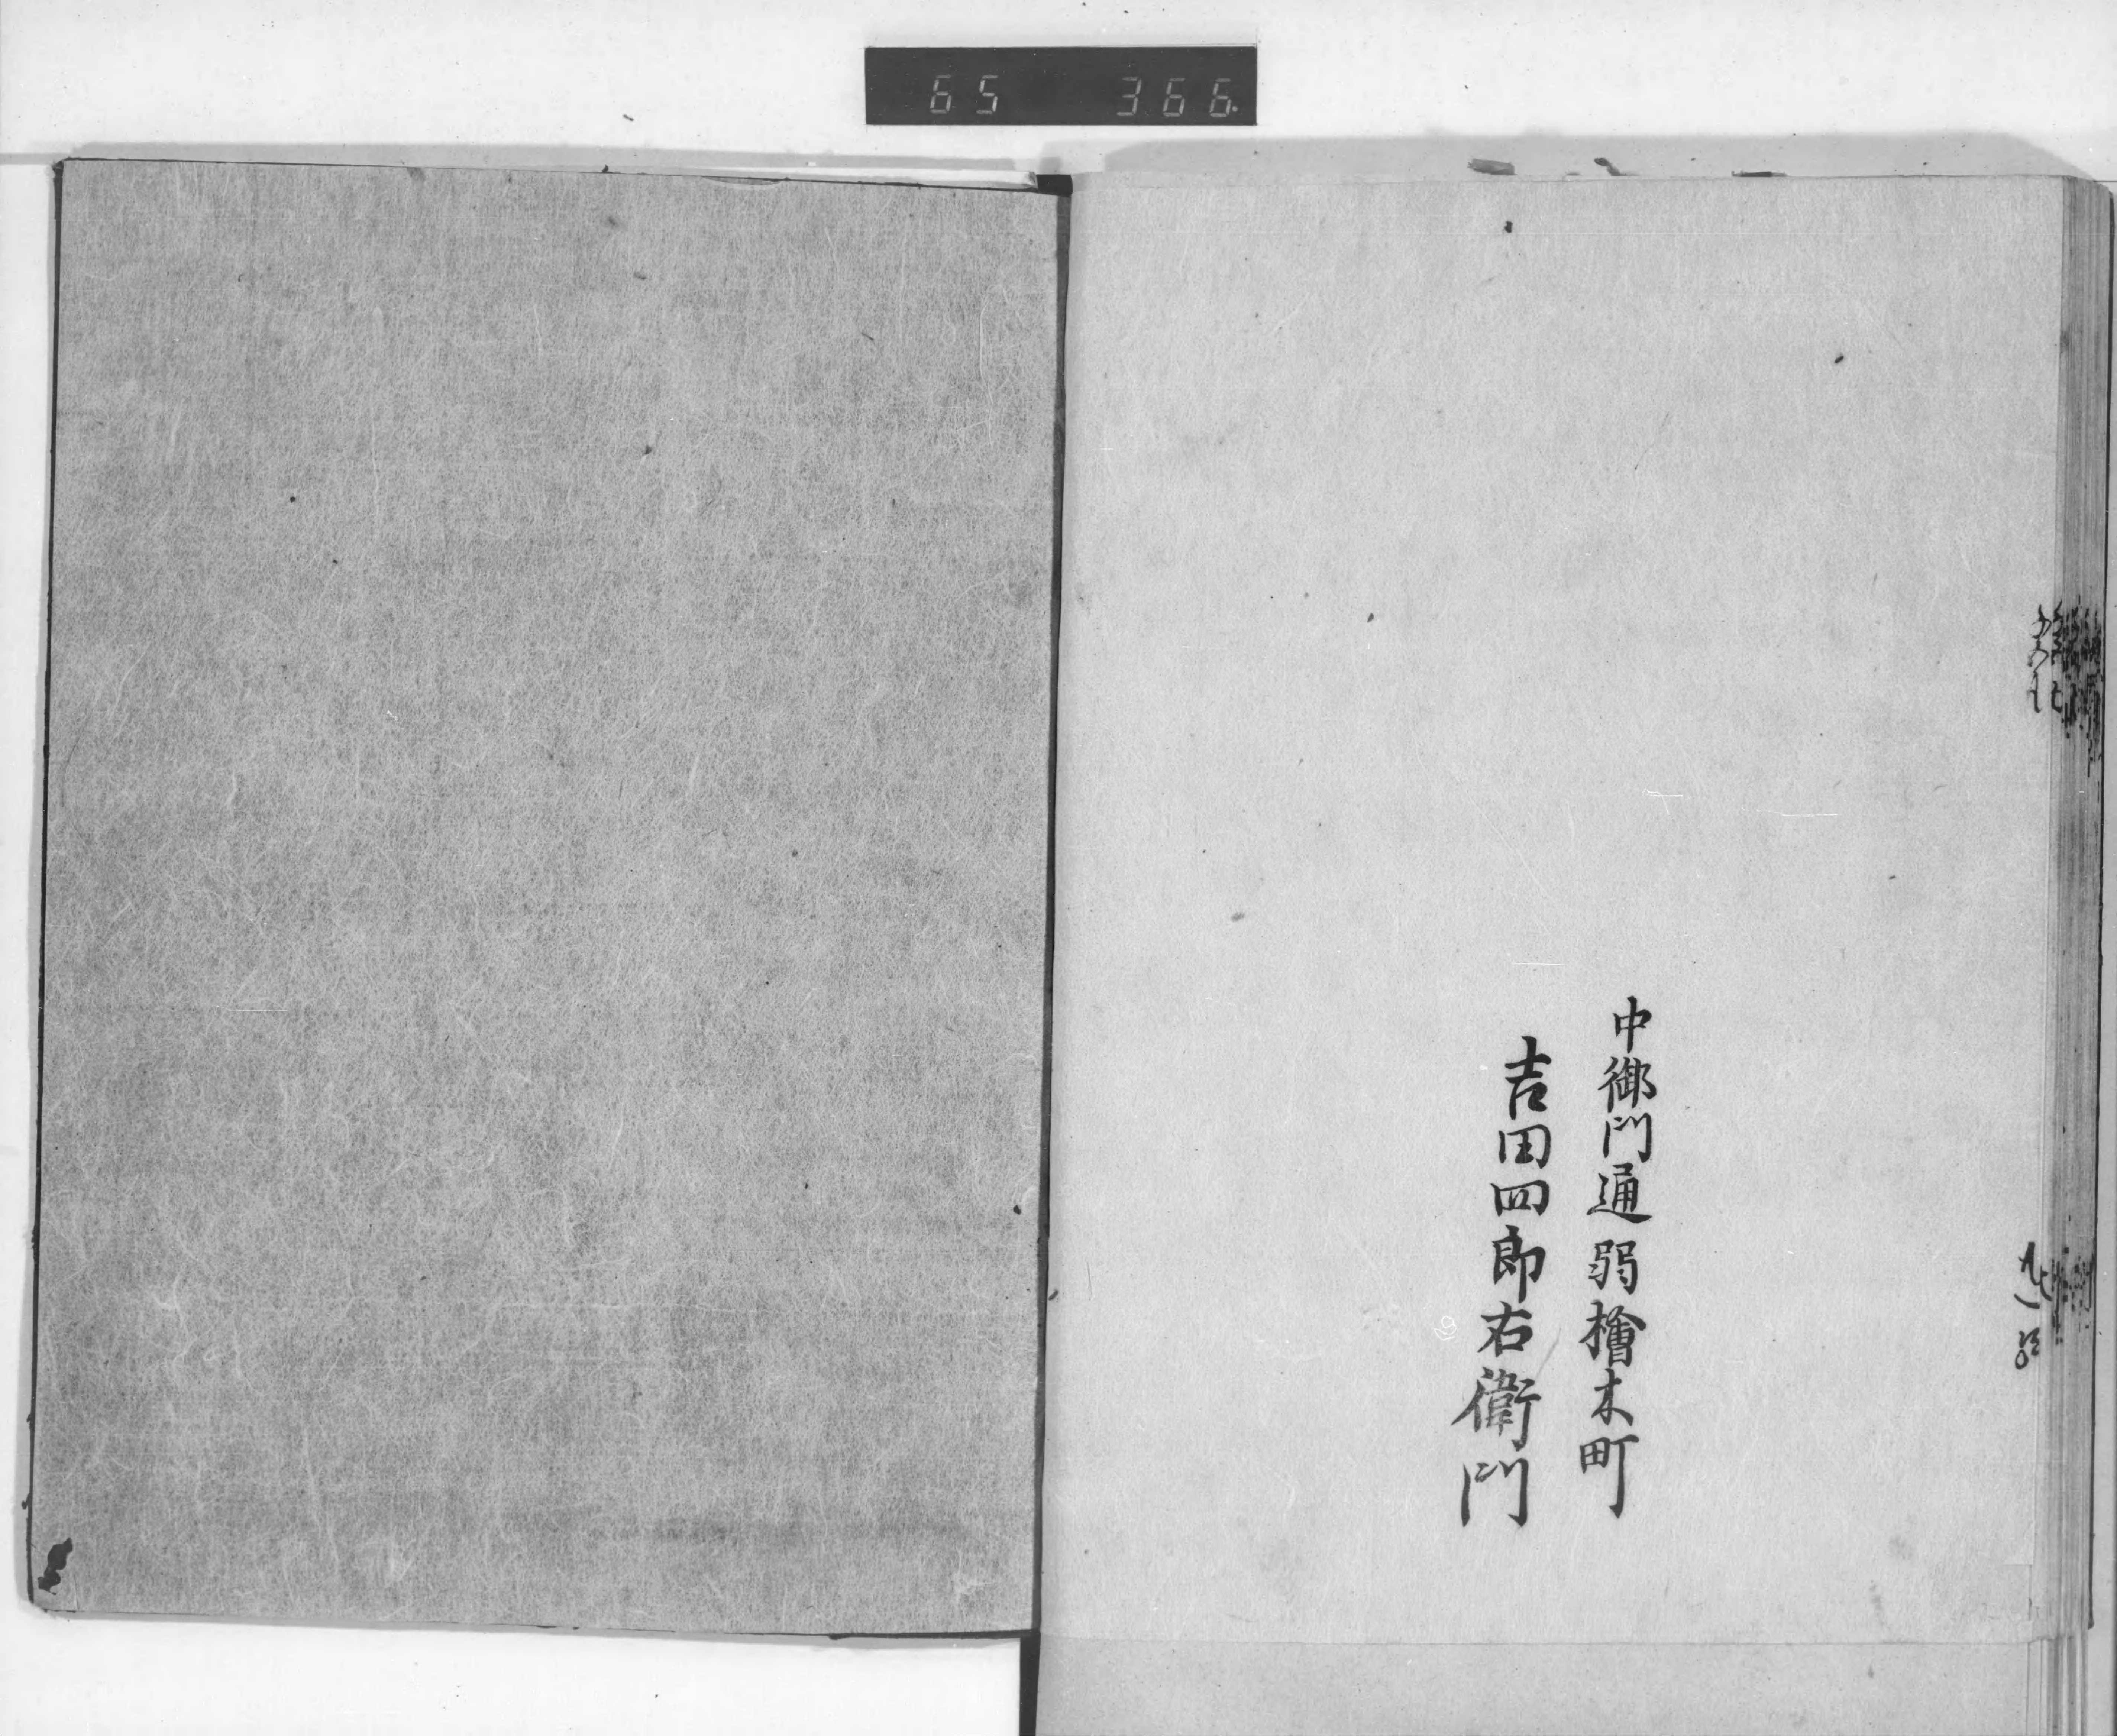 65 366
中御門通弱檜木町
吉田四郎右衛門